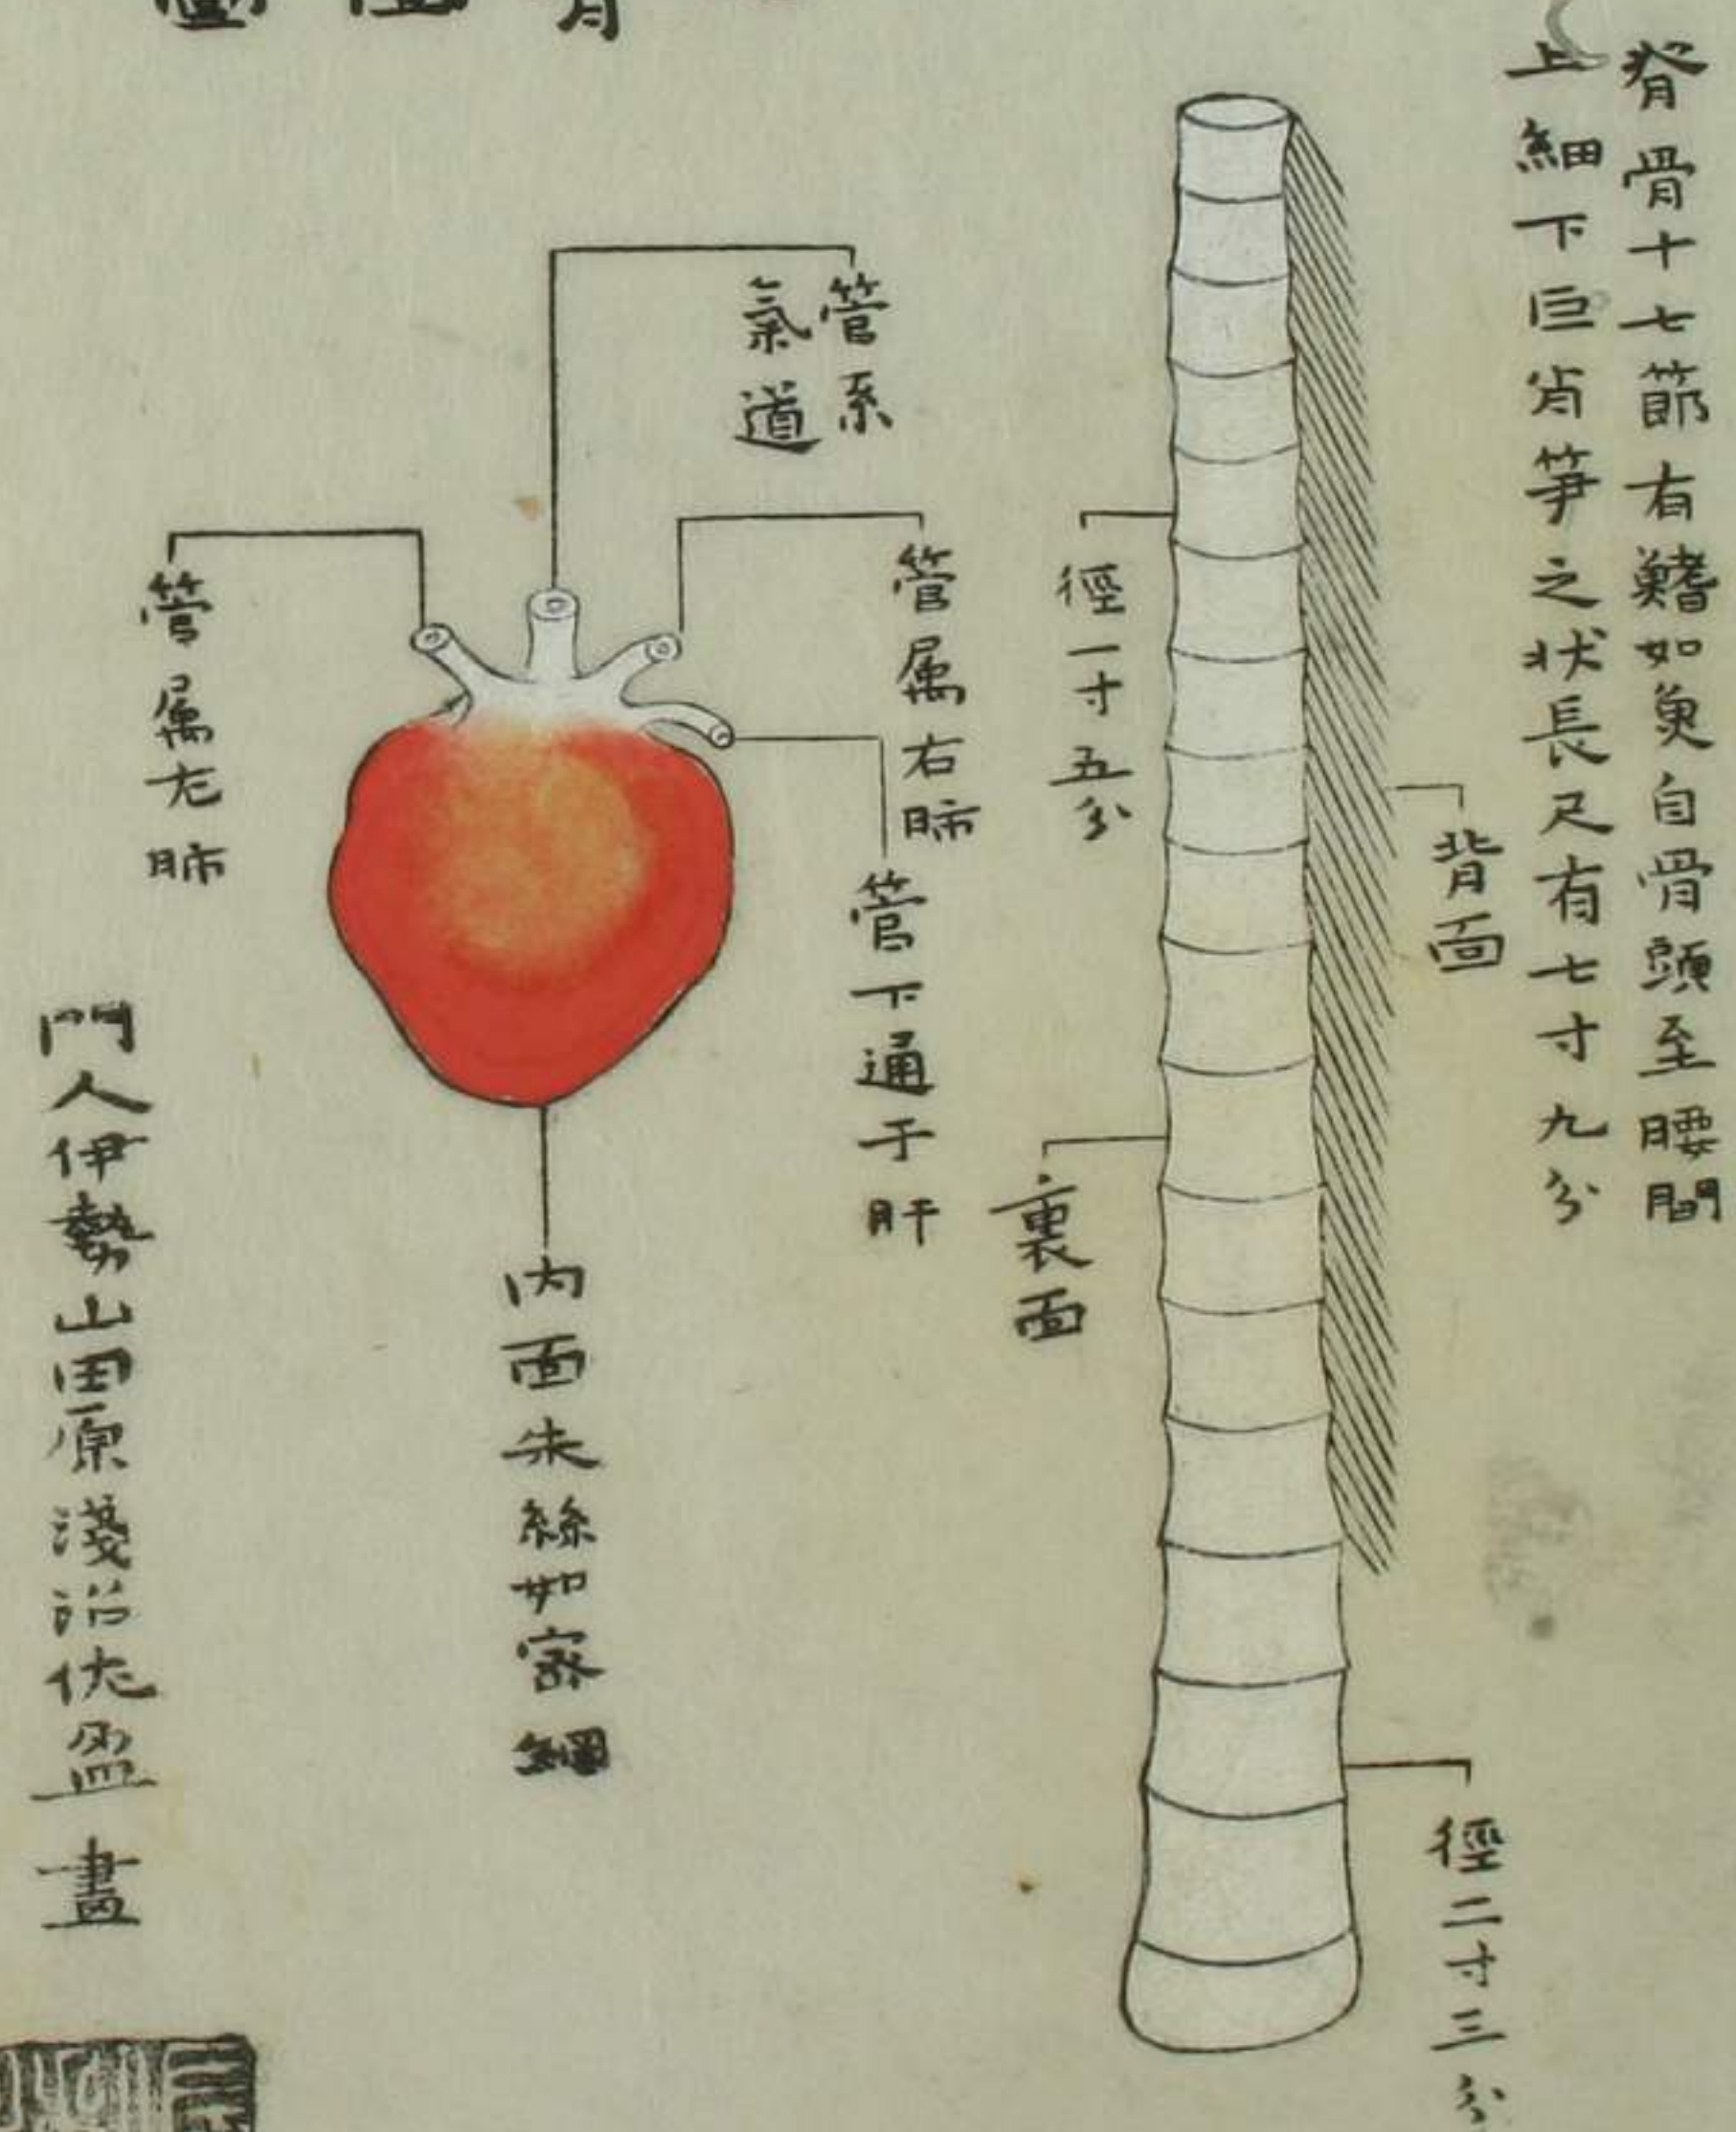 脊骨十七節有鰭如魚自骨頭至腰間
上細下巨肖笋之状長尺有七寸九分
背面
徑一寸五分
裏面
徑二寸三分
管系
氣道
管属右肺
管下通于肝
管属左肺
内面朱絲如密網
門人伊勢山田原淺沼佚盈畫